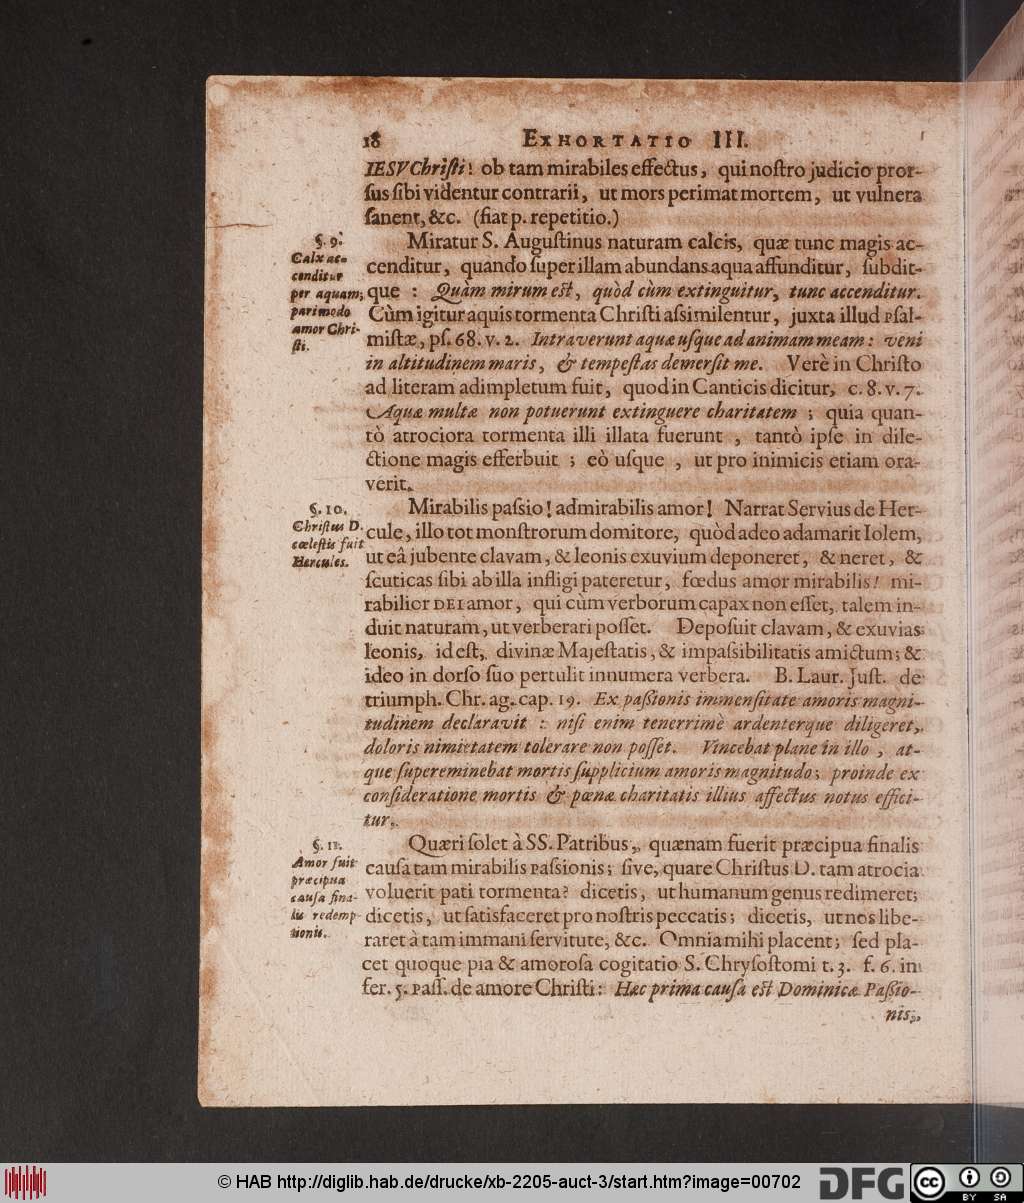 18 EXHORTATIO III.
IESV Chriſti! ob tam mirabiles effectus, qui noſtro judicio pror-
ſus ſibi videntur contrarii, ut mors perimat mortem, ut vulnera
ſanent, &c. (fiat p. repetitio.)
§. 9.
Calx ac-
cenditur
per aquam;
pari modo
amor Chri-
ſti.
Miratur S. Auguſtinus naturam calcis, quæ tunc magis ac-
cenditur, quando ſuper illam abundans aqua affunditur, ſubdit-
que : Quàm mirum eſt, quòd cùm extinguitur, tunc accenditur.
Cùm igitur aquis tormenta Chriſti aſsimilentur, juxta illud Pſal-
miſtæ, pſ. 68. v. 2. Intraverunt aquæ uſque ad animam meam: veni
in altitudinem maris, & tempeſtas demerſit me. Verè in Chriſto
ad literam adimpletum fuit, quod in Canticis dicitur, c. 8. v. 7.
Aquæ multæ non potuerunt extinguere charitatem ; quia quan-
tò atrociora tormenta illi illata fuerunt , tantò ipſe in dile-
ctione magis efferbuit ; eò uſque , ut pro inimicis etiam ora-
verit.
§. 10.
Chriſtus D.
cœleſtis fuit
Hercules.
Mirabilis paſsio! admirabilis amor! Narrat Servius de Her-
cule, illo tot monſtrorum domitore, quòd adeo adamarit Iolem,
ut eâ jubente clavam, & leonis exuvium deponeret, & neret, &
ſcuticas ſibi ab illa infligi pateretur, fœdus amor mirabilis! mi-
rabilior DEI amor, qui cùm verborum capax non eſſet, talem in-
duit naturam, ut verberari poſſet. Depoſuit clavam, & exuvias
leonis, id eſt, divinæ Majeſtatis, & impaſsibilitatis amictum; &
ideo in dorſo ſuo pertulit innumera verbera. B. Laur. Juſt. de
triumph. Chr. ag. cap. 19. Ex paſsionis immenſitate amoris magni-
tudinem declaravit : niſi enim tenerrimè ardenterque diligeret,
doloris nimietatem tolerare non poſſet. Vincebat plane in illo , at-
que ſupereminebat mortis ſupplicium amoris magnitudo; proinde ex
conſideratione mortis & pœnæ charitatis illius affectus notus effici-
tur.
§. 11.
Amor fuit
præcipua
cauſa fina-
lis redemp-
tionis.
Quæri ſolet à SS. Patribus, quænam fuerit præcipua finalis
cauſa tam mirabilis Paſsionis; ſive, quare Chriſtus D. tam atrocia
voluerit pati tormenta? dicetis, ut humanum genus redimeret;
dicetis, ut ſatisfaceret pro noſtris peccatis; dicetis, ut nos libe-
raret à tam immani ſervitute, &c. Omnia mihi placent; ſed pla-
cet quoque pia & amoroſa cogitatio S. Chryſoſtomi t. 3. f. 6. in
fer. 5. Paſſ. de amore Chriſti: Hæc prima cauſa eſt Dominicæ Paſsio-
nis,
© HAB http://diglib.hab.de/drucke/xb-2205-auct-3/start.htm?image=00702
DFG
cc BY SA